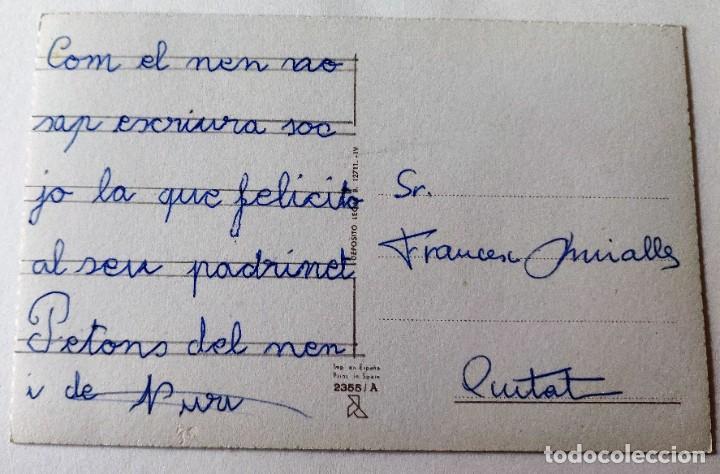 Com el nen no
sap escriura soc
jo la que felicito
al seu padrinet
Petons del nen
i de Nuri
DEPOSITO LEGAL B. 12711.-IV
Sr.
Francesc Miralles
Ciutat
Imp. en España
Print. in Spain
2355/A
todocoleccion.net